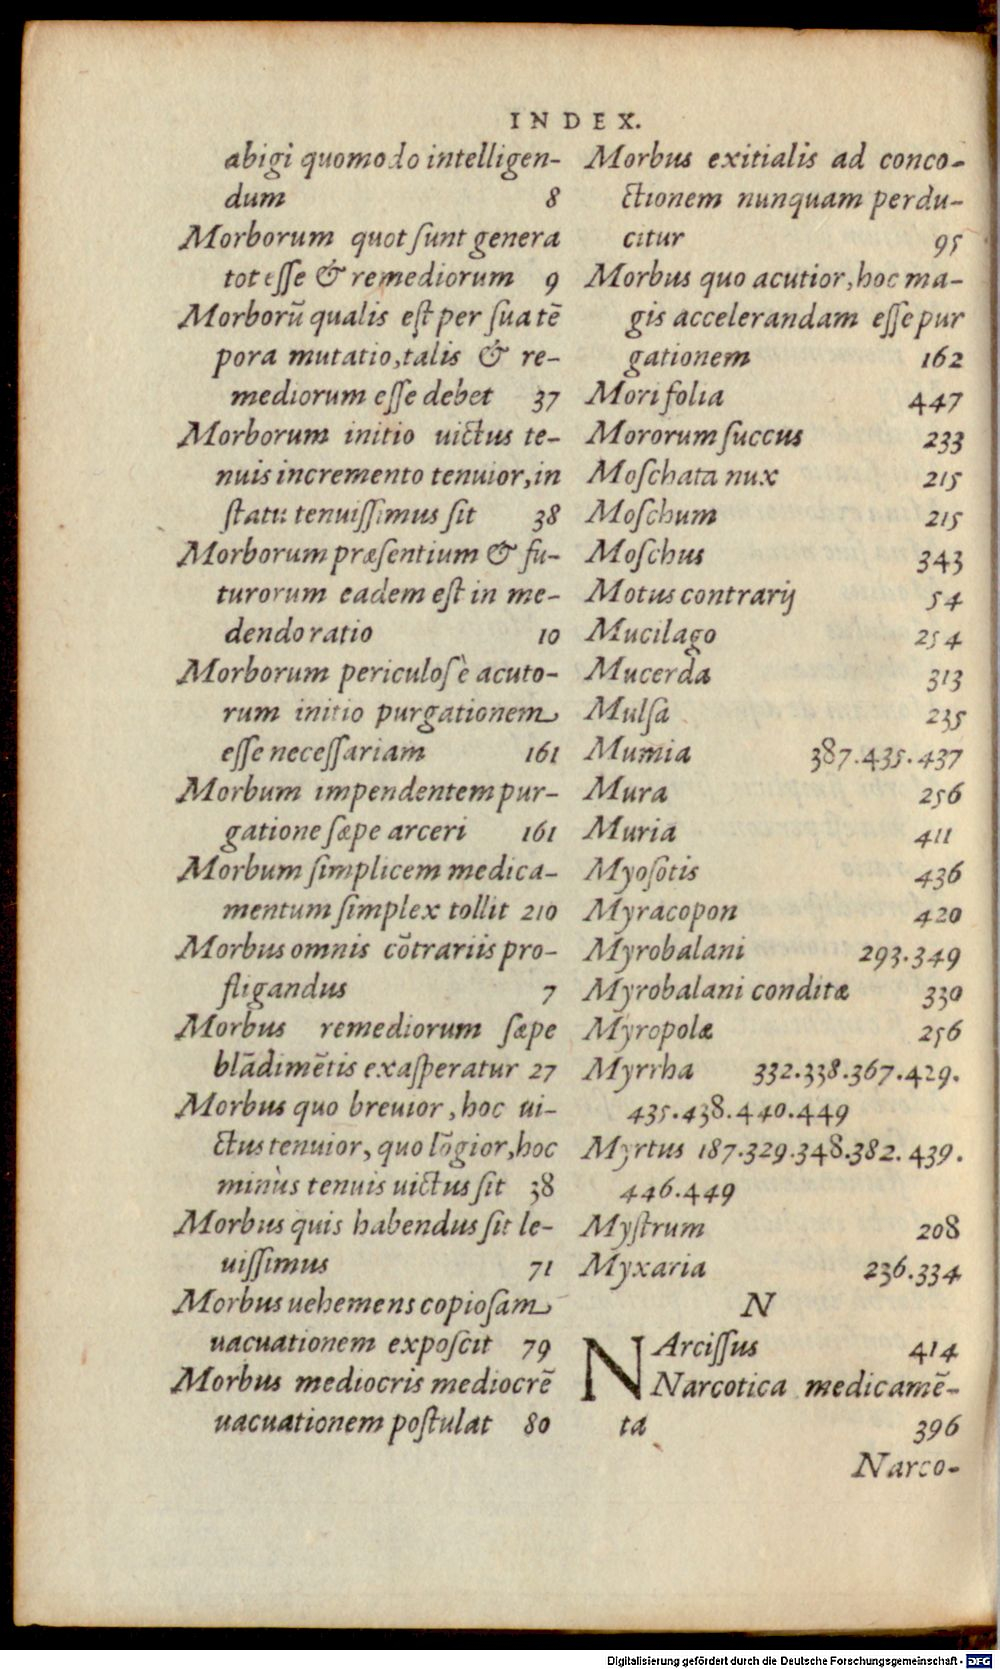 INDEX.
abigi quomodo intelligen-
dum 8
Morborum quot ſunt genera
tot eſſe & remediorum 9
Morborū qualis eſt per ſua tē
pora mutatio, talis & re-
mediorum eſſe debet 37
Morborum initio uictus te-
nuis incremento tenuior, in
ſtatu tenuiſſimus ſit 38
Morborum præſentium & fu-
turorum eadem eſt in me-
dendo ratio 10
Morborum periculoſè acuto-
rum initio purgationem
eſſe neceſſariam 161
Morbum impendentem pur-
gatione ſæpe arceri 161
Morbum ſimplicem medica-
mentum ſimplex tollit 210
Morbus omnis cōtrariis pro-
fligandus 7
Morbus remediorum ſæpe
blādimētis exaſperatur 27
Morbus quo breuior, hoc ui-
ctus tenuior, quo lōgior, hoc
minùs tenuis uictus ſit 38
Morbus quis habendus ſit le-
uiſſimus 71
Morbus uehemens copioſam
uacuationem expoſcit 79
Morbus mediocris mediocrē
uacuationem poſtulat 80
Morbus exitialis ad conco-
ctionem nunquam perdu-
citur 95
Morbus quo acutior, hoc ma-
gis accelerandam eſſe pur
gationem 162
Mori folia 447
Mororum ſuccus 233
Moſchata nux 215
Moſchum 215
Moſchus 343
Motus contrarij 54
Mucilago 254
Mucerda 313
Mulſa 235
Mumia 387.435.437
Mura 256
Muria 411
Myoſotis 436
Myracopon 420
Myrobalani 293.349
Myrobalani conditæ 330
Myropolæ 256
Myrrha 332.338.367.429.
435.438.440.449
Myrtus 187.329.348.382.439.
446.449
Myſtrum 208
Myxaria 236.334
N
NArciſſus 414
Narcotica medicamē-
ta 396
Narco-
Digitalisierung gefördert durch die Deutsche Forschungsgemeinschaft - DFG